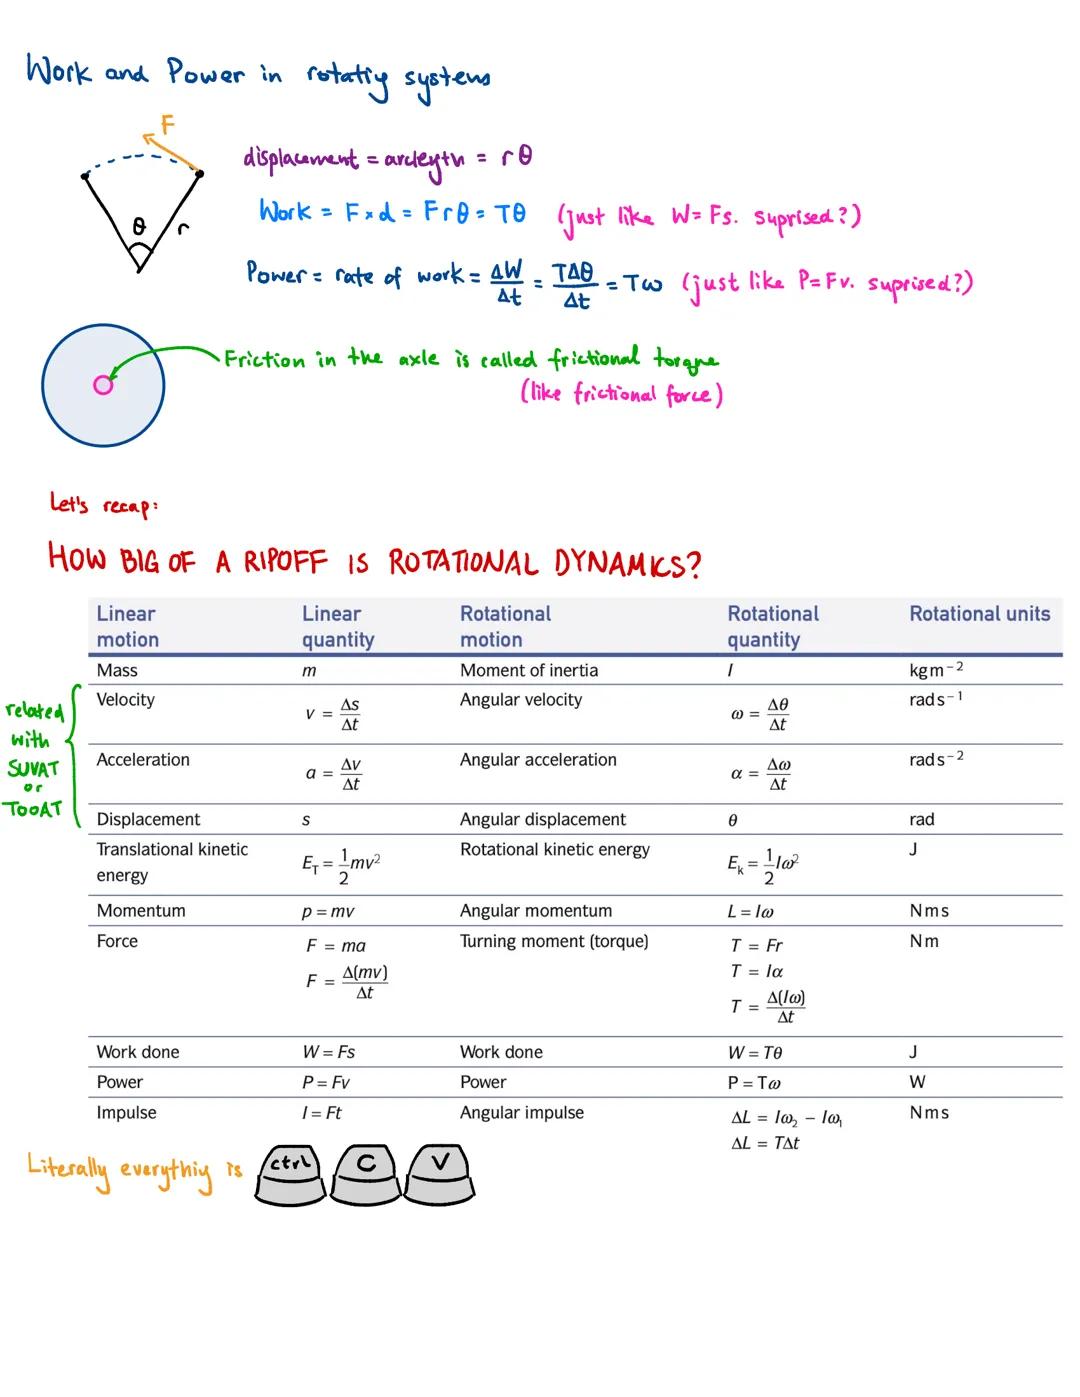 Work and Power in rotatiy systems
F
displacement = arclegth = rθ
Work = F×d = Frθ = Tθ (just like W= Fs. suprised?)
θ r
Power = rate of work = ΔW/Δt = TΔθ/Δt = Tω (just like P= Fv. suprised?)
Friction in the axle is called frictional torque
(like frictional force)
Let's recap:
HOW BIG OF A RIPOFF IS ROTATIONAL DYNAMICS?
Linear motion Linear quantity Rotational motion Rotational quantity Rotational units
Mass m Moment of inertia I kg m⁻²
Velocity v = Δs/Δt Angular velocity ω = Δθ/Δt rad s⁻¹
related with SUVAT or TOOAT
Acceleration a = Δv/Δt Angular acceleration α = Δω/Δt rad s⁻²
Displacement s Angular displacement θ rad
Translational kinetic energy E_T = 1/2 mv² Rotational kinetic energy E_k = 1/2 Iω² J
Momentum p = mv Angular momentum L = Iω N m s
Force F = ma Turning moment (torque) T = Fr N m
T = Iα
F = Δ(mv)/Δt T = Δ(Iω)/Δt
Work done W = Fs Work done W = Tθ J
Power P = Fv Power P = Tω W
Impulse I = Ft Angular impulse ΔL = Iω₂ − Iω₁ N m s
ΔL = TΔt
Literally everythiy is ctrl C V